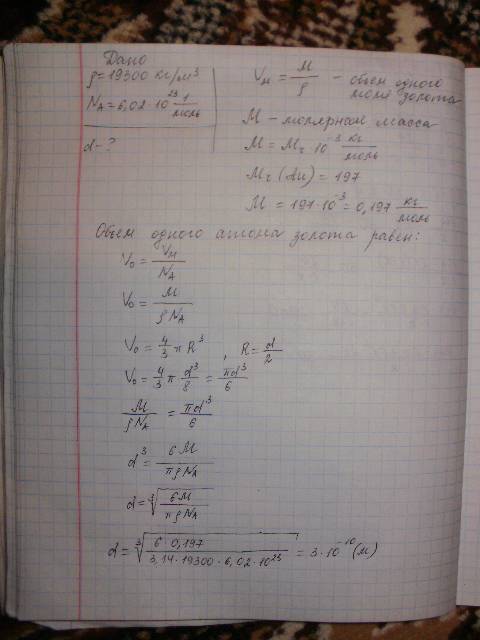 Дано
ρ = 19300 кг/м³
N_A = 6,02·10²³ 1/моль
d - ?
V_м = M/ρ - объем одного моля золота
M - молярная масса
M = M_r·10⁻³ кг/моль
M_r (Au) = 197
M = 197·10⁻³ = 0,197 кг/моль
Объем одного атома золота равен:
V₀ = V_м/N_A
V₀ = M/ρN_A
V₀ = 4/3 π R³, R = d/2
V₀ = 4/3 π d³/8 = πd³/6
M/ρN_A = πd³/6
d³ = 6M/πρN_A
d = ∛(6M/πρN_A)
d = ∛(6·0,197/3,14·19300·6,02·10²³) = 3·10⁻¹⁰ (м)